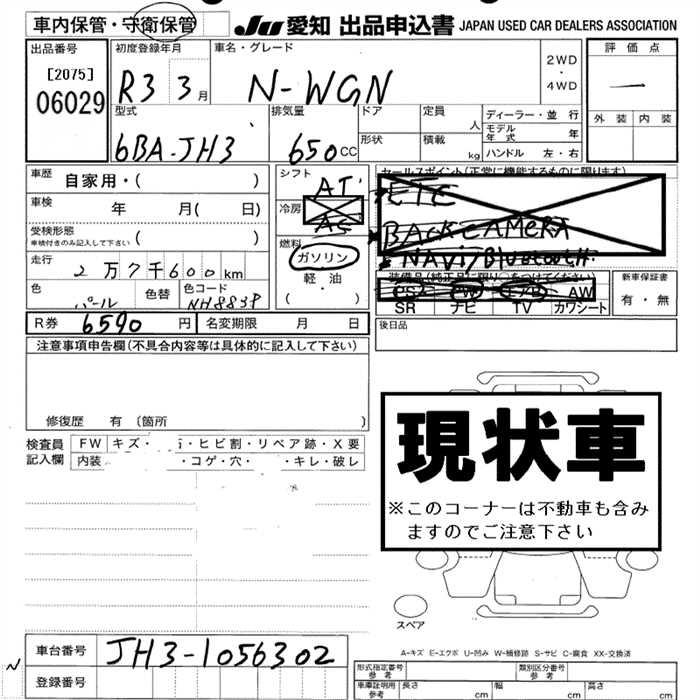 車内保管・守衛保管 JU 愛知 出品申込書 JAPAN USED CAR DEALERS ASSOCIATION
出品番号 初度登録年月 車名・グレード 評価点
[2075] 2WD
06029 R3 3月 N-WGN ・
4WD
型式 排気量 ドア 定員 人 ディーラー・並行 外装 内装
6BA-JH3 650cc 形状 積載 kg モデル年式 年
ハンドル 左・右
車歴 自家用・( ) シフト AT セールスポイント(正常に機能するものに限ります)
車検 年 月( 日) 冷房 ETC
受検形態 車検付きのみ記入して下さい ( ) BACKCAMERA
走行 2万7千600km 燃料 ガソリン NAVI/Bluetooth
色 パール 色替 色コード NH883P 軽・油 ( ) 装備品(純正品に限り○をつけてください) 新車保証書
PS PW AW 有・無
SR ナビ TV カワシート
R券 6590円 名変期限 月 日 後日品
注意事項申告欄(不具合内容等は具体的に記入して下さい)
修復歴 有 〔箇所 〕
検査員記入欄 FW キズ・ ・ヒビ割・リペア跡・X要
内装 ・コゲ・穴・ ・キレ・破レ
現状車
※このコーナーは不動車も含み
ますのでご注意下さい
スペア
A-キズ E-エクボ U-凹み W-補修跡 S-サビ C-腐食 XX-交換済
車台番号 JH3-1056302
登録番号
形式指定番号 参考 類別区分番号 参考
車庫証明用 参考 長さ cm 幅 cm 高さ cm